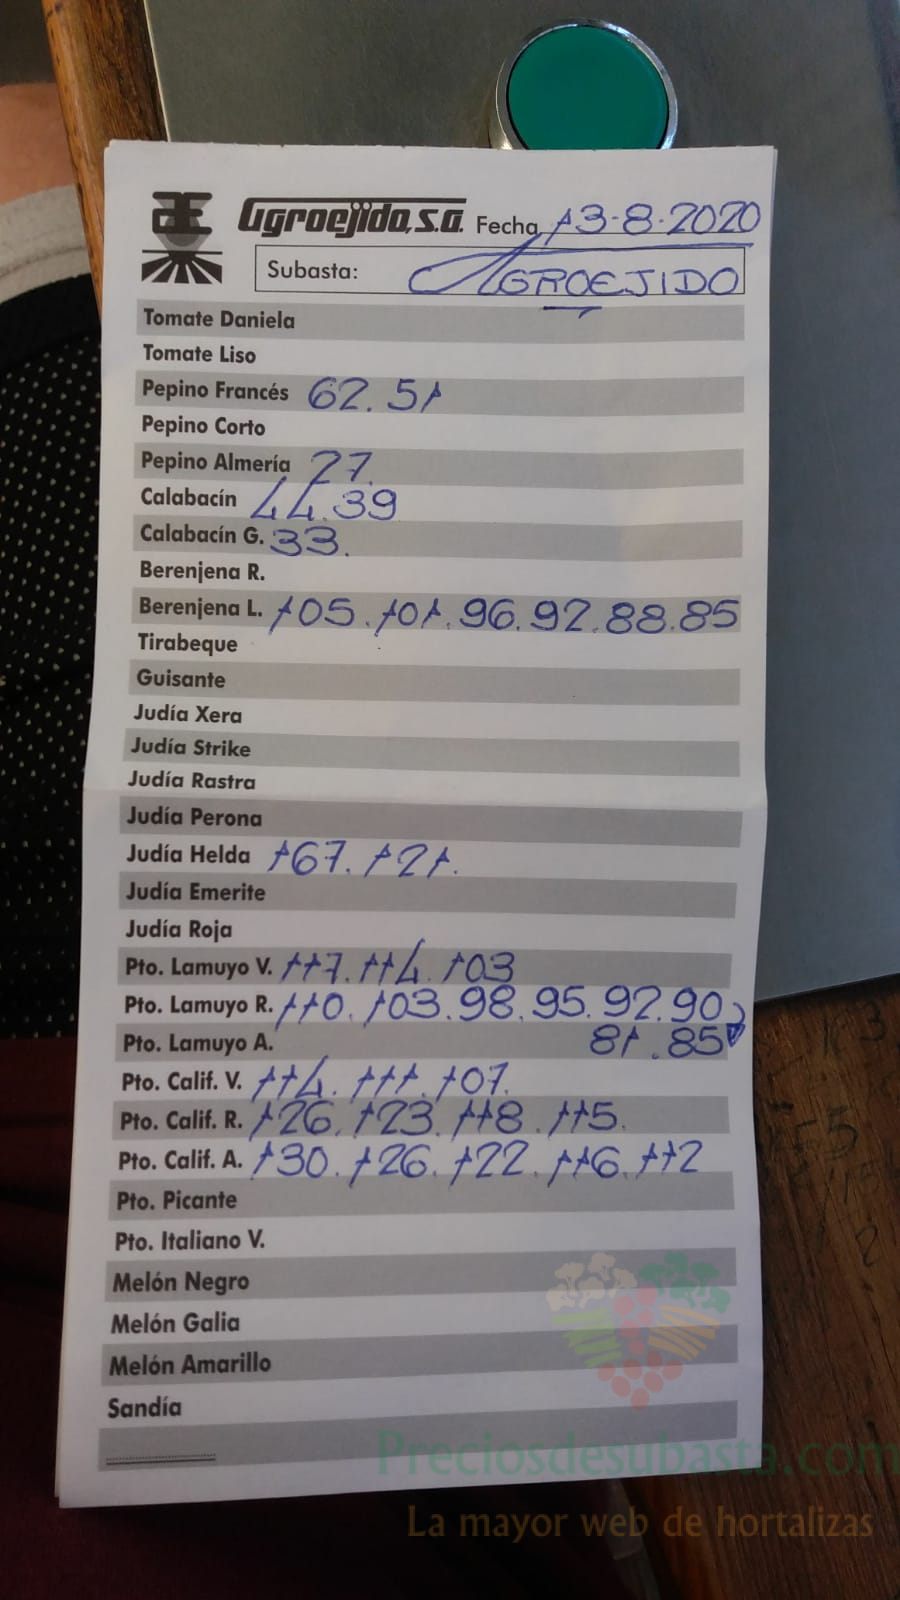 Agroejido, S.A. Fecha 13-8-2020
Subasta: AGROEJIDO
Tomate Daniela
Tomate Liso
Pepino Francés 62.51
Pepino Corto
Pepino Almería 27.
Calabacín 44.39
Calabacín G. 33.
Berenjena R.
Berenjena L. 105.101.96.92.88.85
Tirabeque
Guisante
Judía Xera
Judía Strike
Judía Rastra
Judía Perona
Judía Helda 167.121.
Judía Emerite
Judía Roja
Pto. Lamuyo V. 117.114.103
Pto. Lamuyo R. 110.103.98.95.92.90
Pto. Lamuyo A. 81.85
Pto. Calif. V. 114.111.107.
Pto. Calif. R. 126.123.118.115.
Pto. Calif. A. 130.126.122.116.112
Pto. Picante
Pto. Italiano V.
Melón Negro
Melón Galia
Melón Amarillo
Sandía
Preciosdesubasta.com
La mayor web de hortalizas